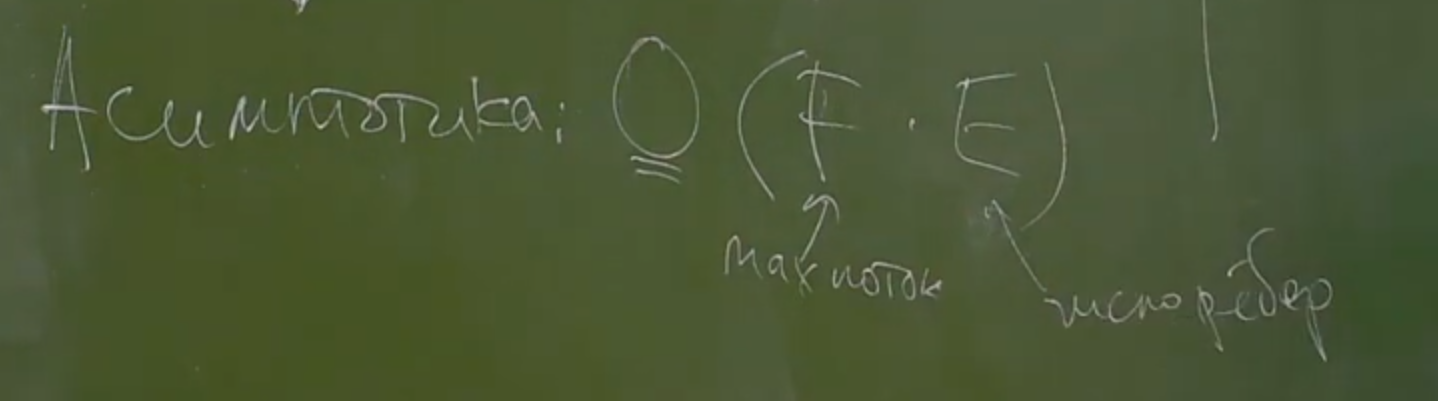 Асимптотика: O (F · E)
max поток
число рёбер